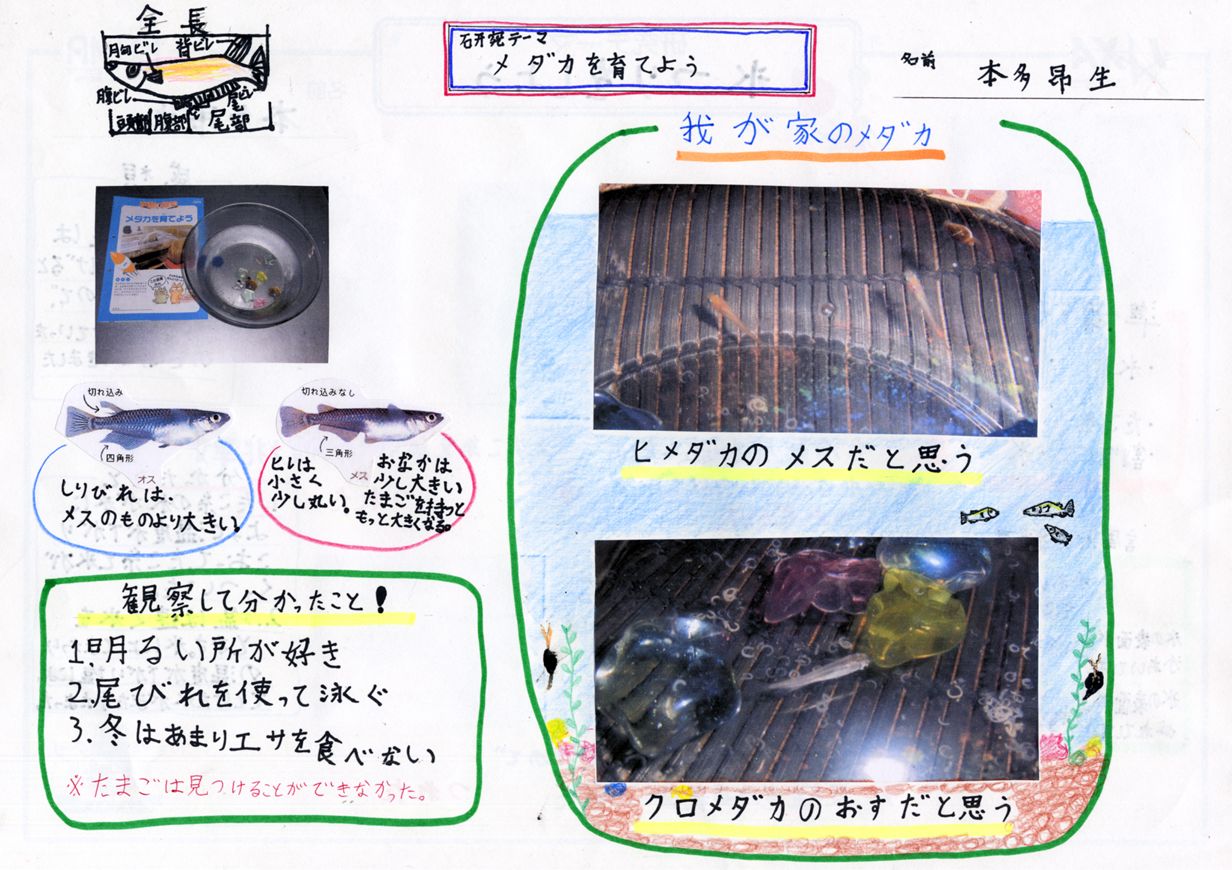 全長
胸ビレ 背ビレ
腹ビレ 尻ビレ 尾ビレ
頭部 腹部 尾部
研究テーマ
メダカを育てよう
名前 本多昂生
我が家のメダカ
メダカを育てよう
切れ込み
四角形
オス
しりびれは、
メスのものより大きい。
切れ込みなし
三角形
メス
ヒレは
小さく
少し丸い。
おなかは
少し大きい
たまごを持つと
もっと大きくなる。
ヒメダカのメスだと思う
観察して分かったこと!
1.明るい所が好き
2.尾びれを使って泳ぐ
3.冬はあまりエサを食べない
※たまごは見つけることができなかった。
クロメダカのおすだと思う